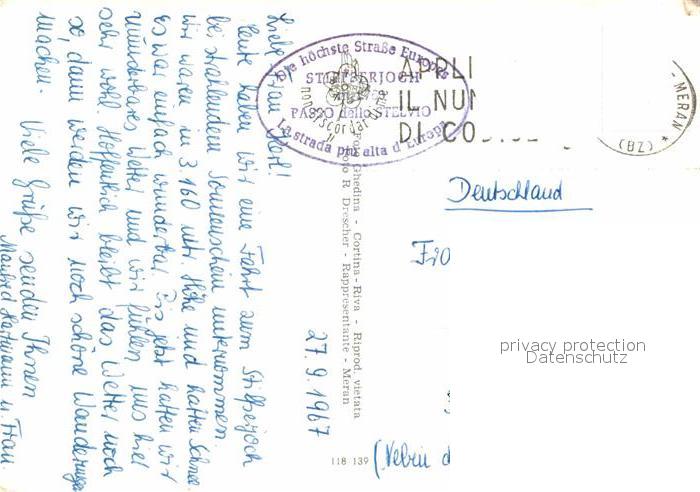 Liebe Frau
heute haben wir eine Fahrt zum Stilfserjoch
bei strahlendem Sonnenschein unternommen.
wir waren in 3.160 mtr. Höhe und hatten Schnee.
Es war einfach wunderbar. Bis jetzt hatten wir
wunderbares Wetter und wir fühlen uns hier
sehr wohl. Hoffentlich bleibt das Wetter noch
so, dann werden wir noch schöne Wanderungen
machen. Viele Grüße senden Ihnen
Manfred Hartmann u. Frau.
27.9.1967
Die höchste Straße Europas
STILFSERJOCH
PASSO dello STELVIO
La strada più alta d'Europa
non ti scordar
APPLI
IL NUM
DI CO
- MERAN *
(BZ)
Ghedina - Cortina - Riva - Riprod. vietata
Foto R. Drescher - Rappresentante - Meran
118 139
Deutschland
Fro
privacy protection
Datenschutz
(Nebin d